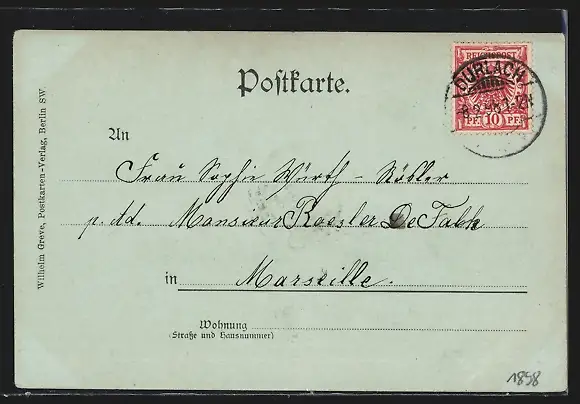 Postkarte.
REICHSPOST
DURLACH
10
PF.
PF.
An
Frau Sophie Wirth -
p. Ad. Monsieur Roesler De
in Marseille.
Wohnung
(Straße und Hausnummer)
Wilhelm Greve, Postkarten-Verlag, Berlin SW.
1898